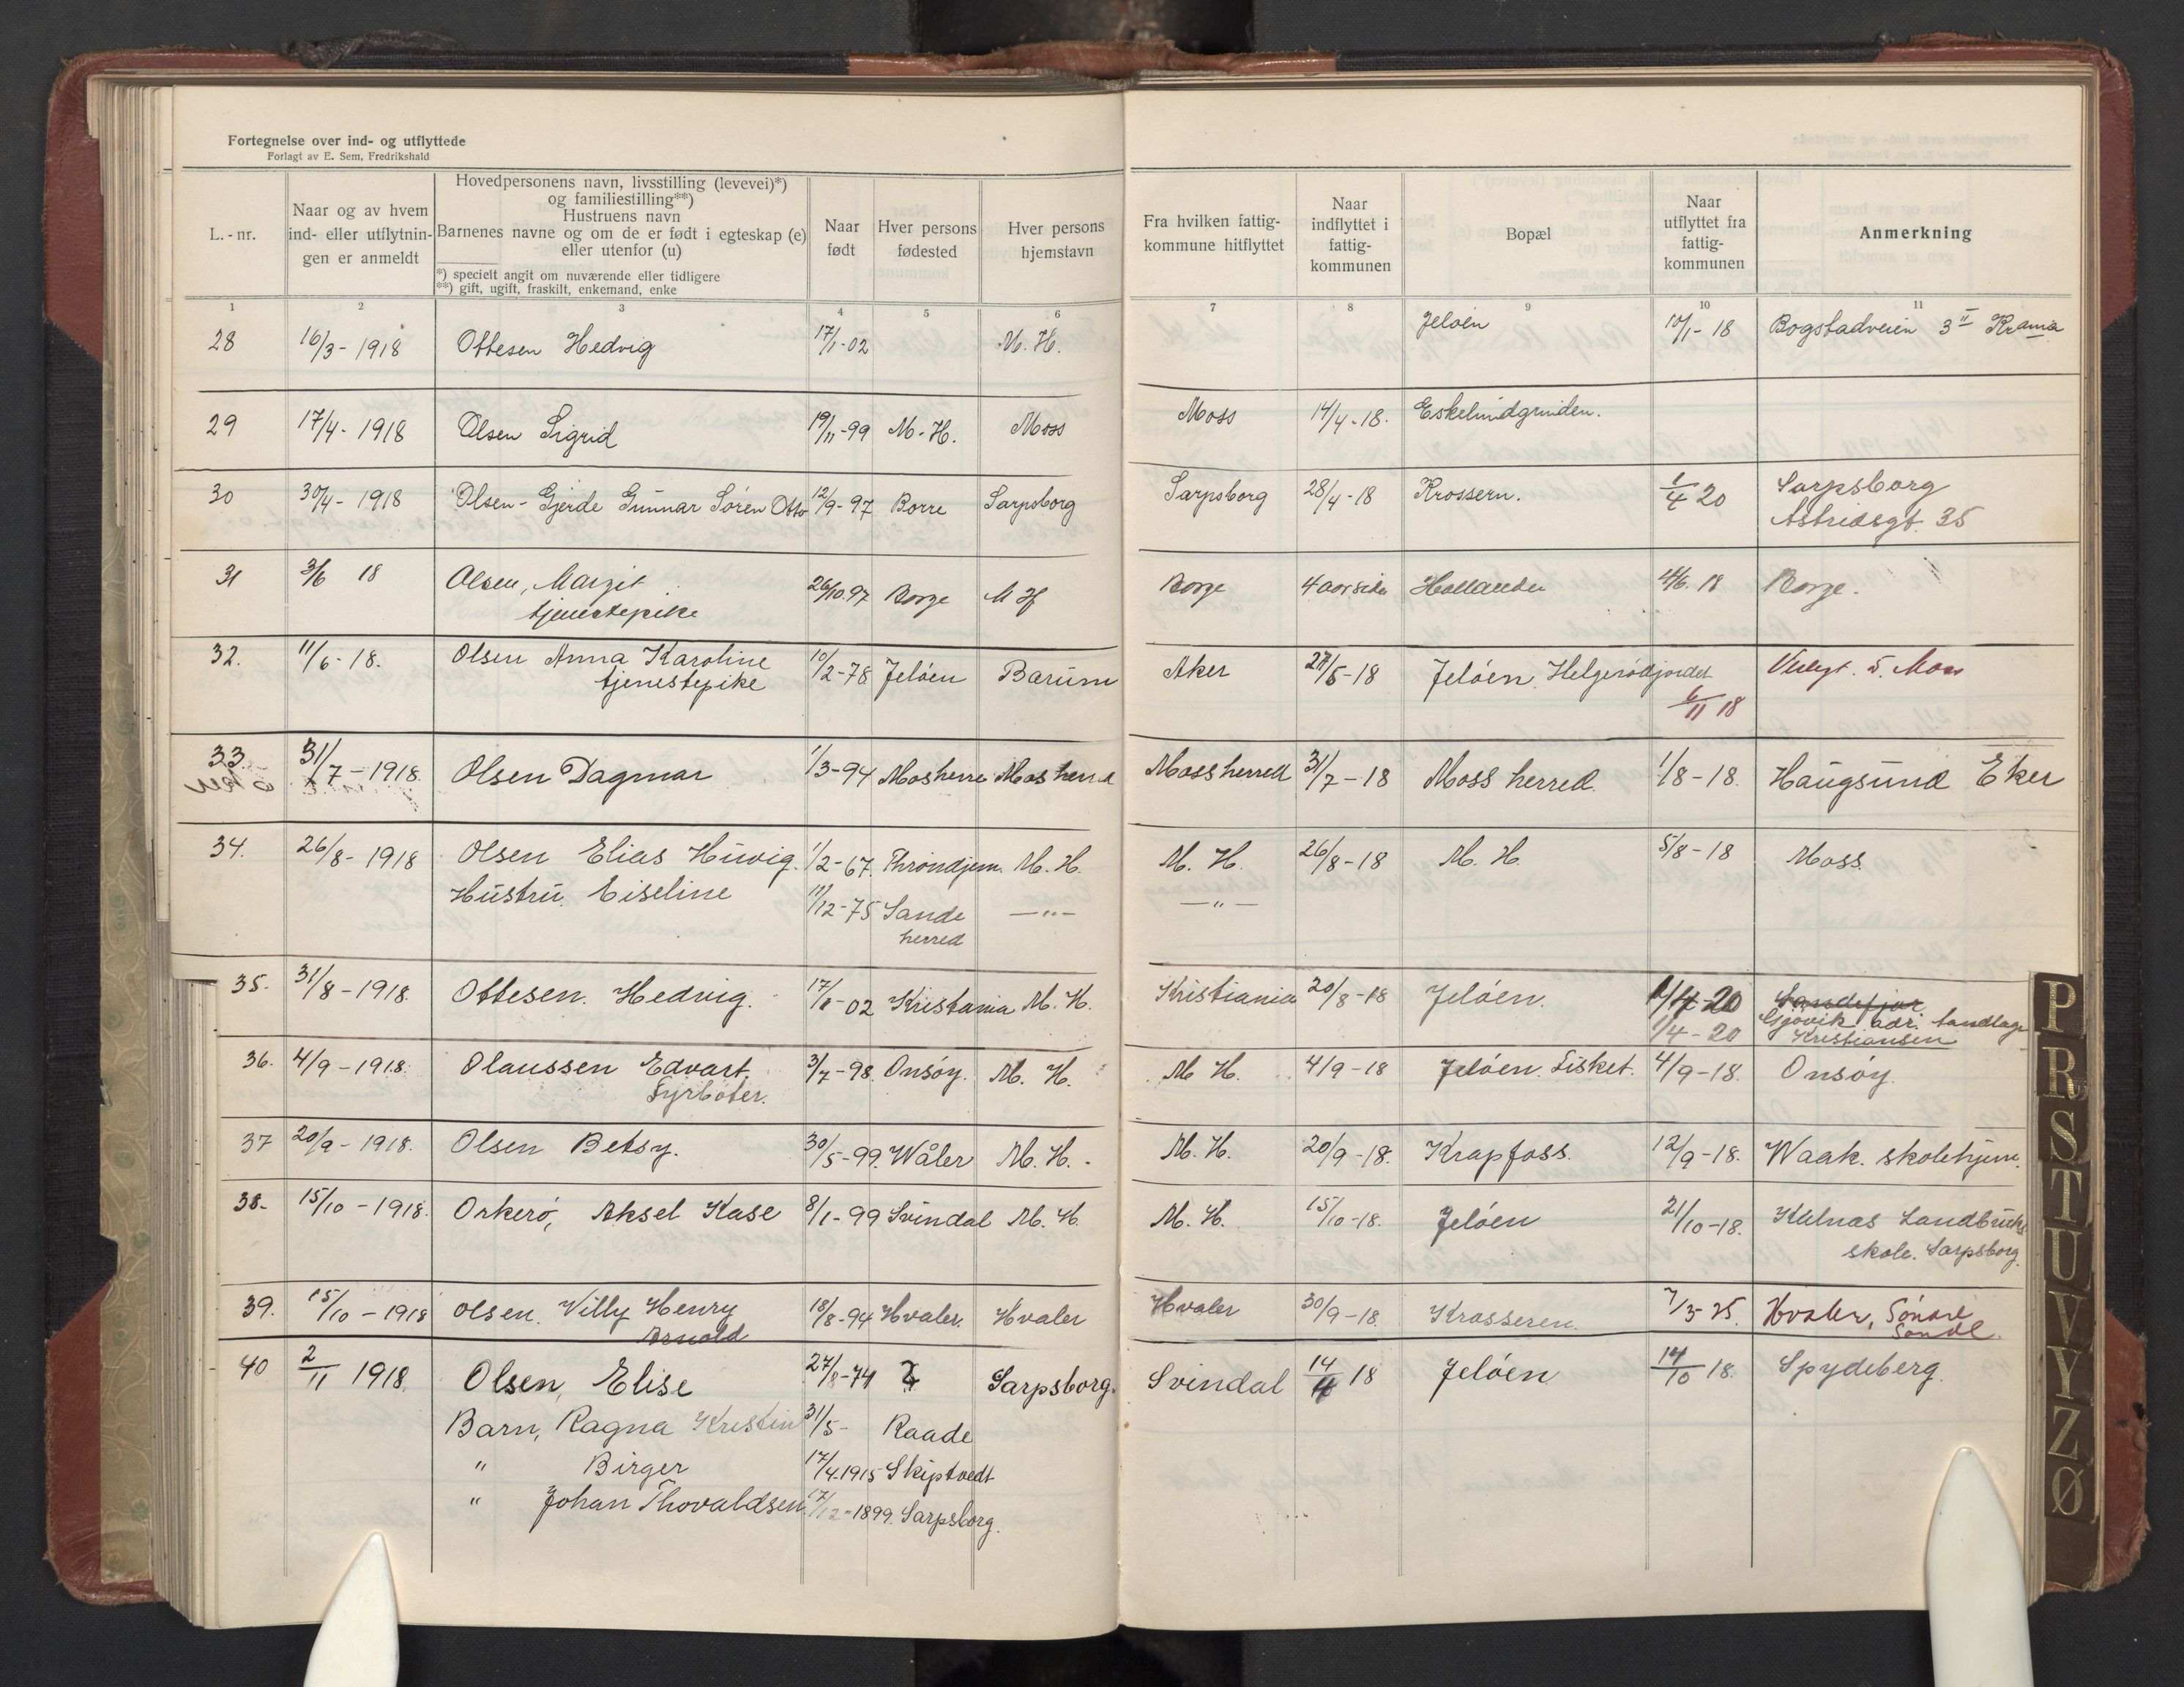 Fortegnelse over ind- og utflyttede
Forlagt av E. Sem, Fredrikshald
L.-nr.
Naar og av hvem
ind- eller utflytnin-
gen er anmeldt
Hovedpersonens navn, livsstilling (levevei)*)
og familiestilling**)
Hustruens navn
Barnenes navne og om de er født i egteskap (e)
eller utenfor (u)
*) specielt angit om nuværende eller tidligere
**) gift, ugift, fraskilt, enkemand, enke
Naar
født
Hver persons
fødested
Hver persons
hjemstavn
Fra hvilken fattig-
kommune hitflyttet
Naar
indflyttet i
fattig-
kommunen
Bopæl
Naar
utflyttet fra
fattig-
kommunen
Anmerkning
1 2 3 4 5 6 7 8 9 10 11
28 16/3-1918 Ottesen Hedvig 17/1-02 M. H. Jeløen 10/1-18 Bogstadveien 3 II Krania
29 17/4-1918 Olsen Sigrid 19/11-99 M.H. Moss Moss 14/4-18. Eskelundgrinden.
30 30/4-1918 Olsen-Gjerde Gunnar Sören Otto 12/9-97 Borre Sarpsborg Sarpsborg 28/4-18 Krossern. 1/4 20 Sarpsborg
Astridsgt. 35
31 3/6 18 Olsen, Margit 26/10.97 Borge M H Borge 4 aar siden 4/6.18 Borge.
tjenestepike
32. 11/6-18. Olsen Anna Karoline 10/2-78 Jelöen Barüm Aker 27/5-18 Jelöen. Helgerödjordet Moss
tjenestepike 6/11 18
33. 31/7-1918 Olsen Dagmar 1/3-94 Mosherre Mosherred Mossherred 31/7-18 Moss herred. 1/8-18. Haugsund Eker
34. 26/8-1918 Olsen Elias Huvig. 1/2-67. Throndjem. M. H. M. H. 26/8-18 M. H. 5/8-18 Moss.
Hustru. Liseline 11/12-75 Sande —"— —"—
herred
35. 31/8-1918. Ottesen. Hedvig. 17/1-02 Kristiania M. H. Kristiania 20/8-18 Jelöen. 1/4-20 Sandefjor
1/4-20 Gjövik adr. landlage
Kristiansen
36. 4/9-1918. Olaussen Edvart. 3/7-98. Onsöy. M. H. M H. 4/9-18 Jelöen. Sisket. 4/9-18. Onsöy.
Fyrböter.
37 20/9-1918. Olsen Betsy. 30/5-99. Wåler M. H. M. H. 20/9-18. Krapfoss. 12/9-18. Waak. skolehjem.
38. 15/10-1918. Orkerö, Aksel Kase 8/1-99 Svindal M. H. M. H. 15/10-18. Jelöen 21/10-18. Kalnas Landbruks
skole. Sarpsborg.
39. 15/10-1918 Olsen. Villy Henry 18/8-94 Hvaler. Hvaler Hvaler 30/9-18. Krosseren. 7/3-25. Hvaler, Söndre
Arnold Sandö.
40 2/11 1918. Olsen, Elise 27/8-74 ? Sarpsborg. Svindal 14/4 18 Jelöen 14/10 18. Spydeberg.
Barn, Ragna Kristin 31/5- Raade
" Birger 17/4.1915 Skiptvedt
" Johan Thovaldsen 17/12-1899. Sarpsborg.
P
R
S
T
U
V
Y
Z
Ø